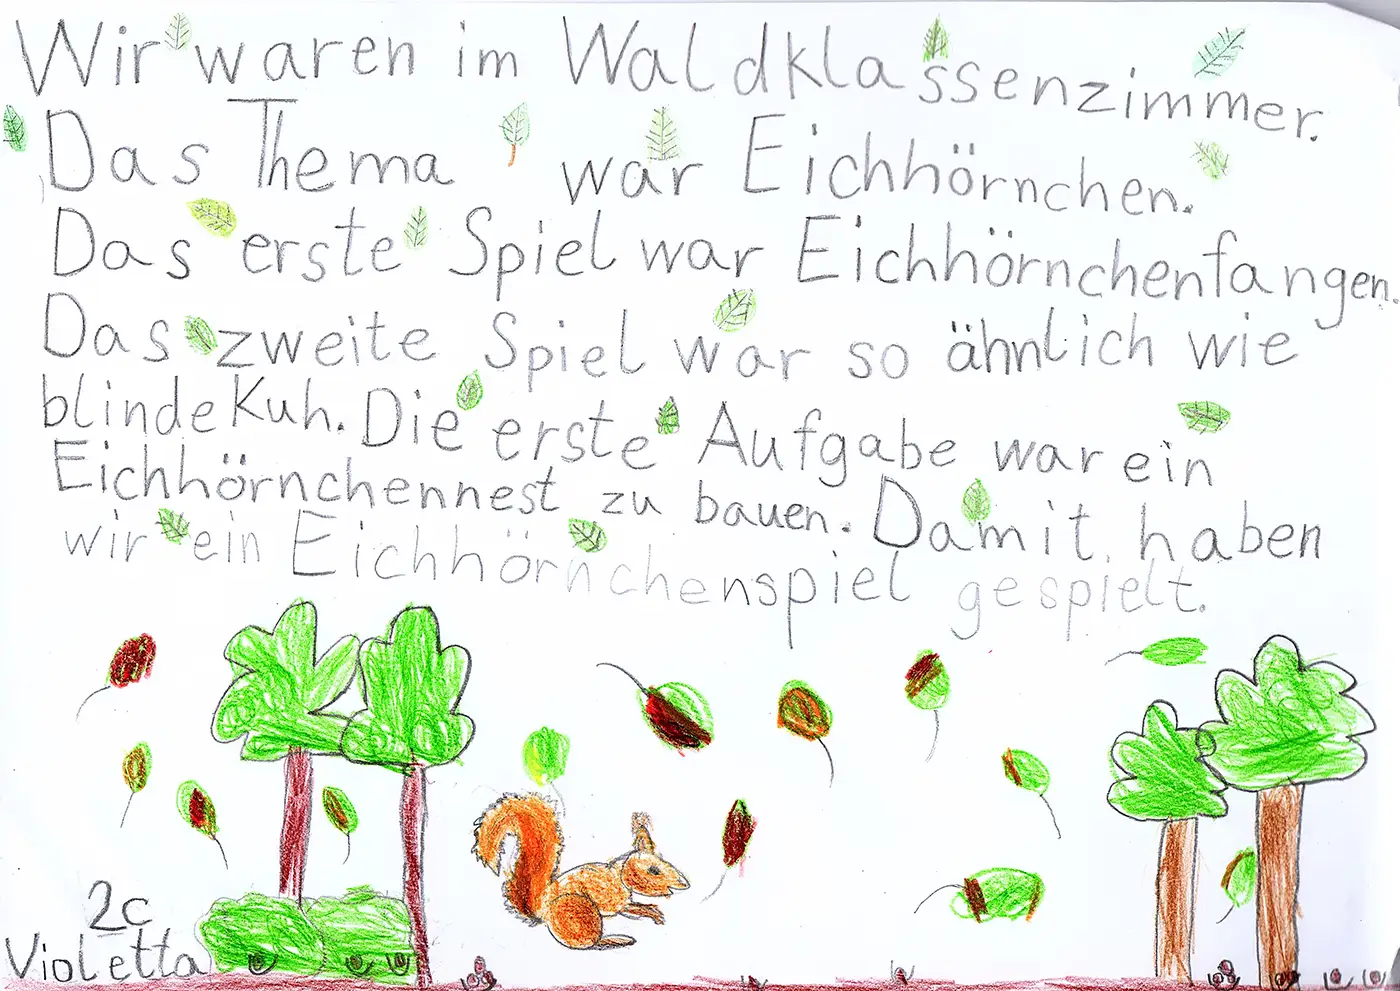 Wir waren im Waldklassenzimmer.
Das Thema war Eichhörnchen.
Das erste Spiel war Eichhörnchenfangen.
Das zweite Spiel war so ähnlich wie
blinde Kuh. Die erste Aufgabe war ein
Eichhörnchennest zu bauen. Damit haben
wir ein Eichhörnchenspiel gespielt.
2c
Violetta